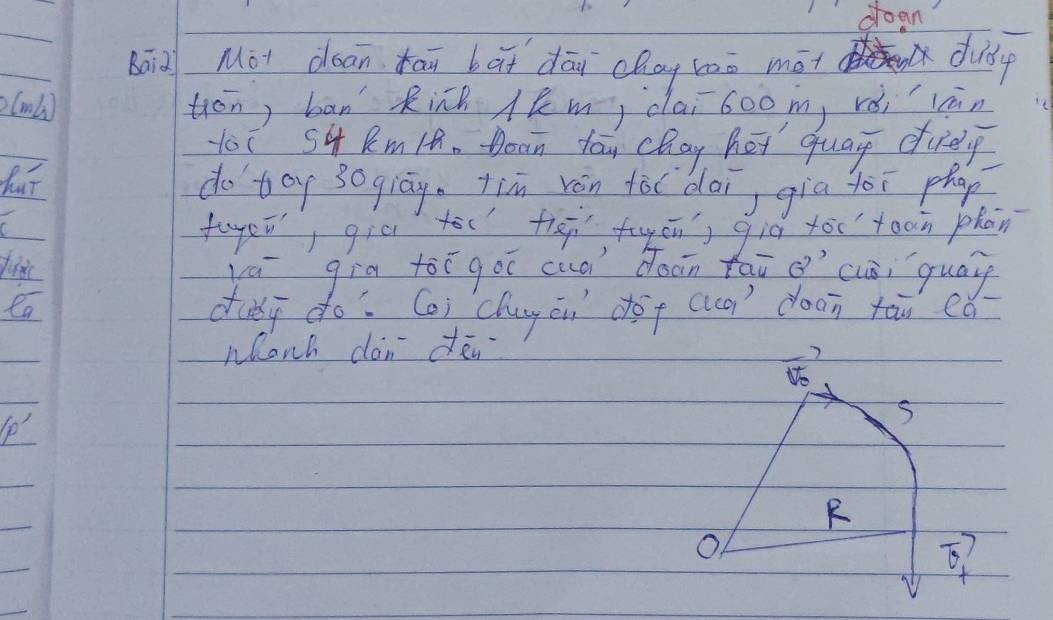 đoạn
Bài 2 Một đoàn tàu bắt đầu chạy vào một đường
tròn, bán kính 1km, dài 600m, với vận
tốc 54 km/h. Đoàn tàu chạy hết quãng đường
đó trong 30 giây. Tìm vận tốc dài, gia tốc pháp
tuyến, gia tốc tiếp tuyến, gia tốc toàn phần
và gia tốc góc của đoàn tàu ở cuối quãng
đường đó. Coi chuyển động của đoàn tàu là
nhanh dần đều
V₀
S
R
O